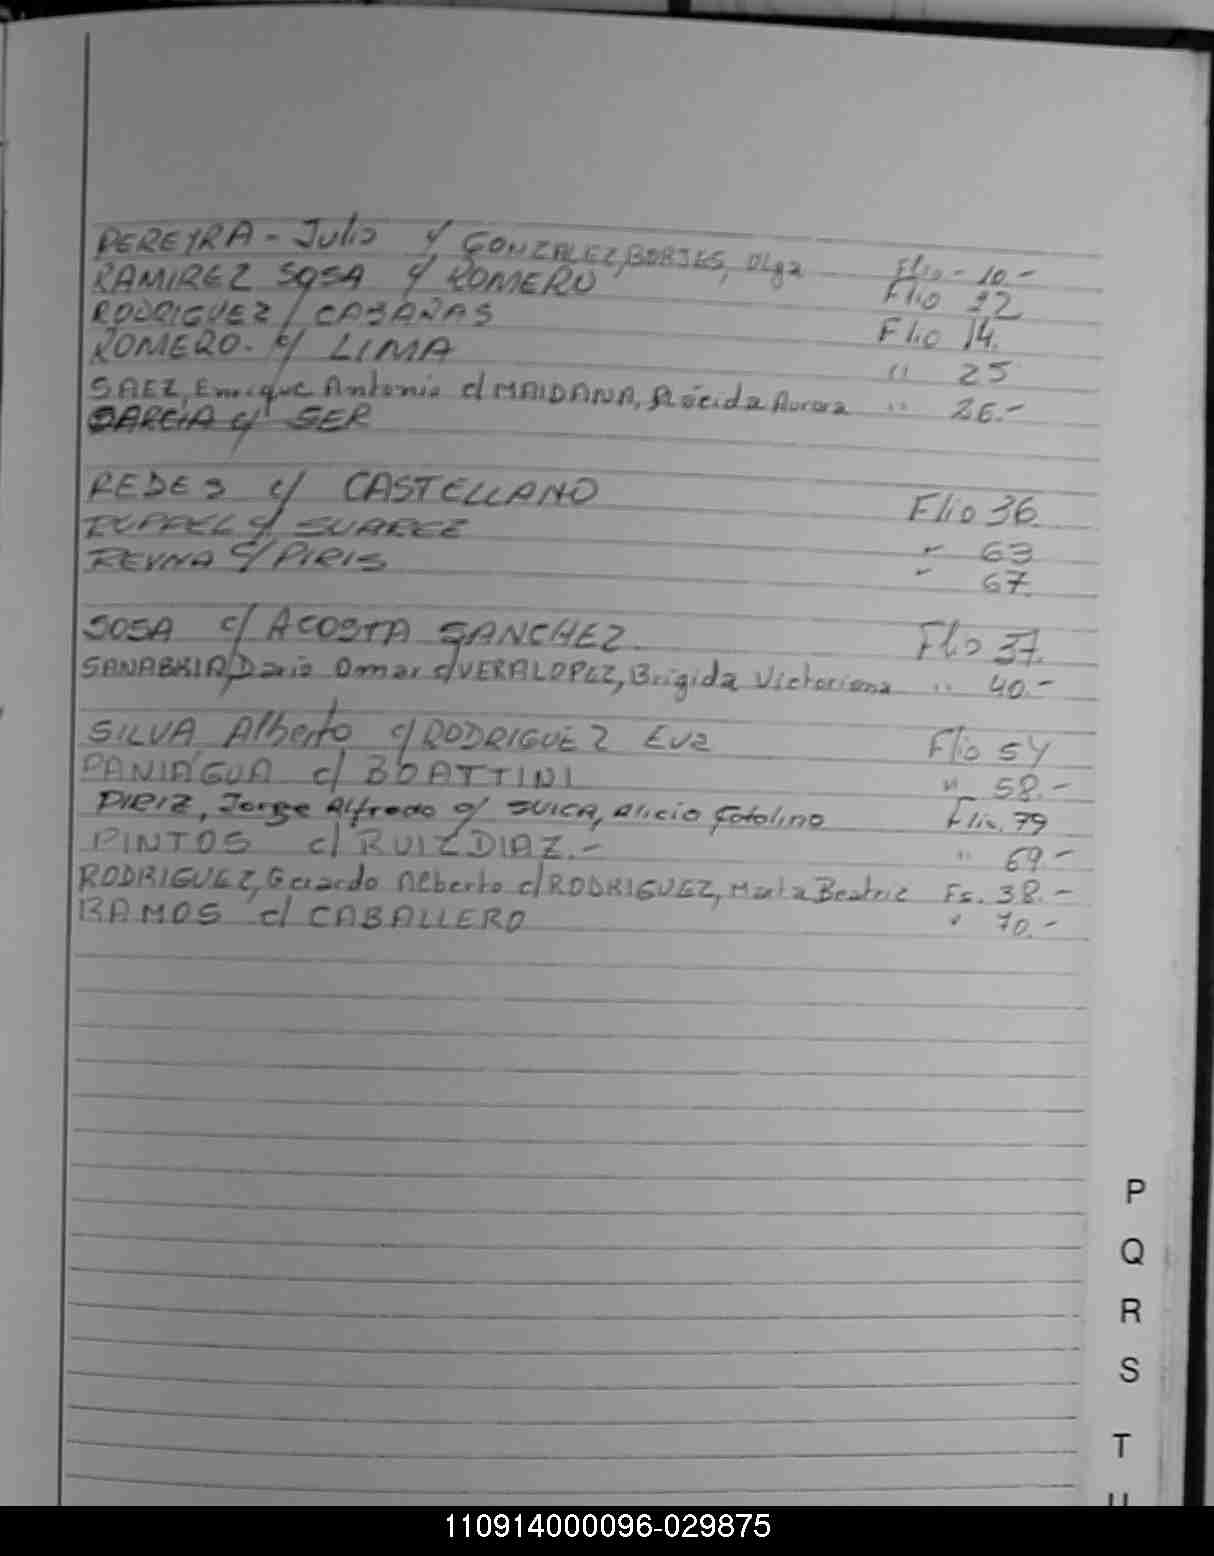 PEREYRA - Julio c/ GONZALEZ, BORJES, Olga Flio - 10.-
RAMIREZ SOSA c/ ROMERO Flio 12
RODRIGUEZ / CABAÑAS Flio 14.
ROMERO. c/ LIMA " 25
SAEZ, Enrique Antonio c/ MAIDANA, Plácida Aurora " 26.-
GARCIA c/ SER
REDES c/ CASTELLANO Flio 36.
RUPPEL c/ SUAREZ " 63
REYNA c/ PIRIS " 67.
SOSA c/ ACOSTA SANCHEZ. Flio 37.
SANABRIA, Dario Omar c/ VERA LOPEZ, Brigida Victoriana " 40.-
SILVA Alberto c/ RODRIGUEZ Eva Flio 54
PANIAGUA c/ BOATTINI " 58.-
PIRIZ, Jorge Alfredo c/ SUICA, Alicia Catalina Flio. 79
PINTOS c/ RUIZ DIAZ.- " 69.-
RODRIGUEZ, Gerardo Alberto c/ RODRIGUEZ, Marta Beatriz Fs. 38.-
RAMOS c/ CABALLERO " 70.-
P
Q
R
S
T
U
110914000096-029875